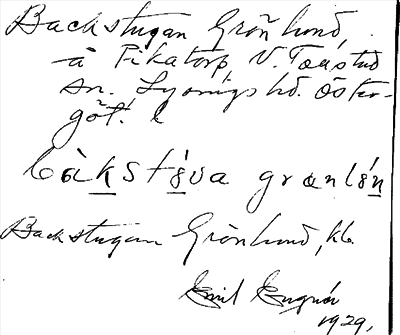 Backstugan Grönlund,
å Pikatorp V. Tollstad
sn. Lysings hd. Öster-
göt. l
bàkstúva grønlún
Backstugan Grönlund, kb.
Emil
1929.